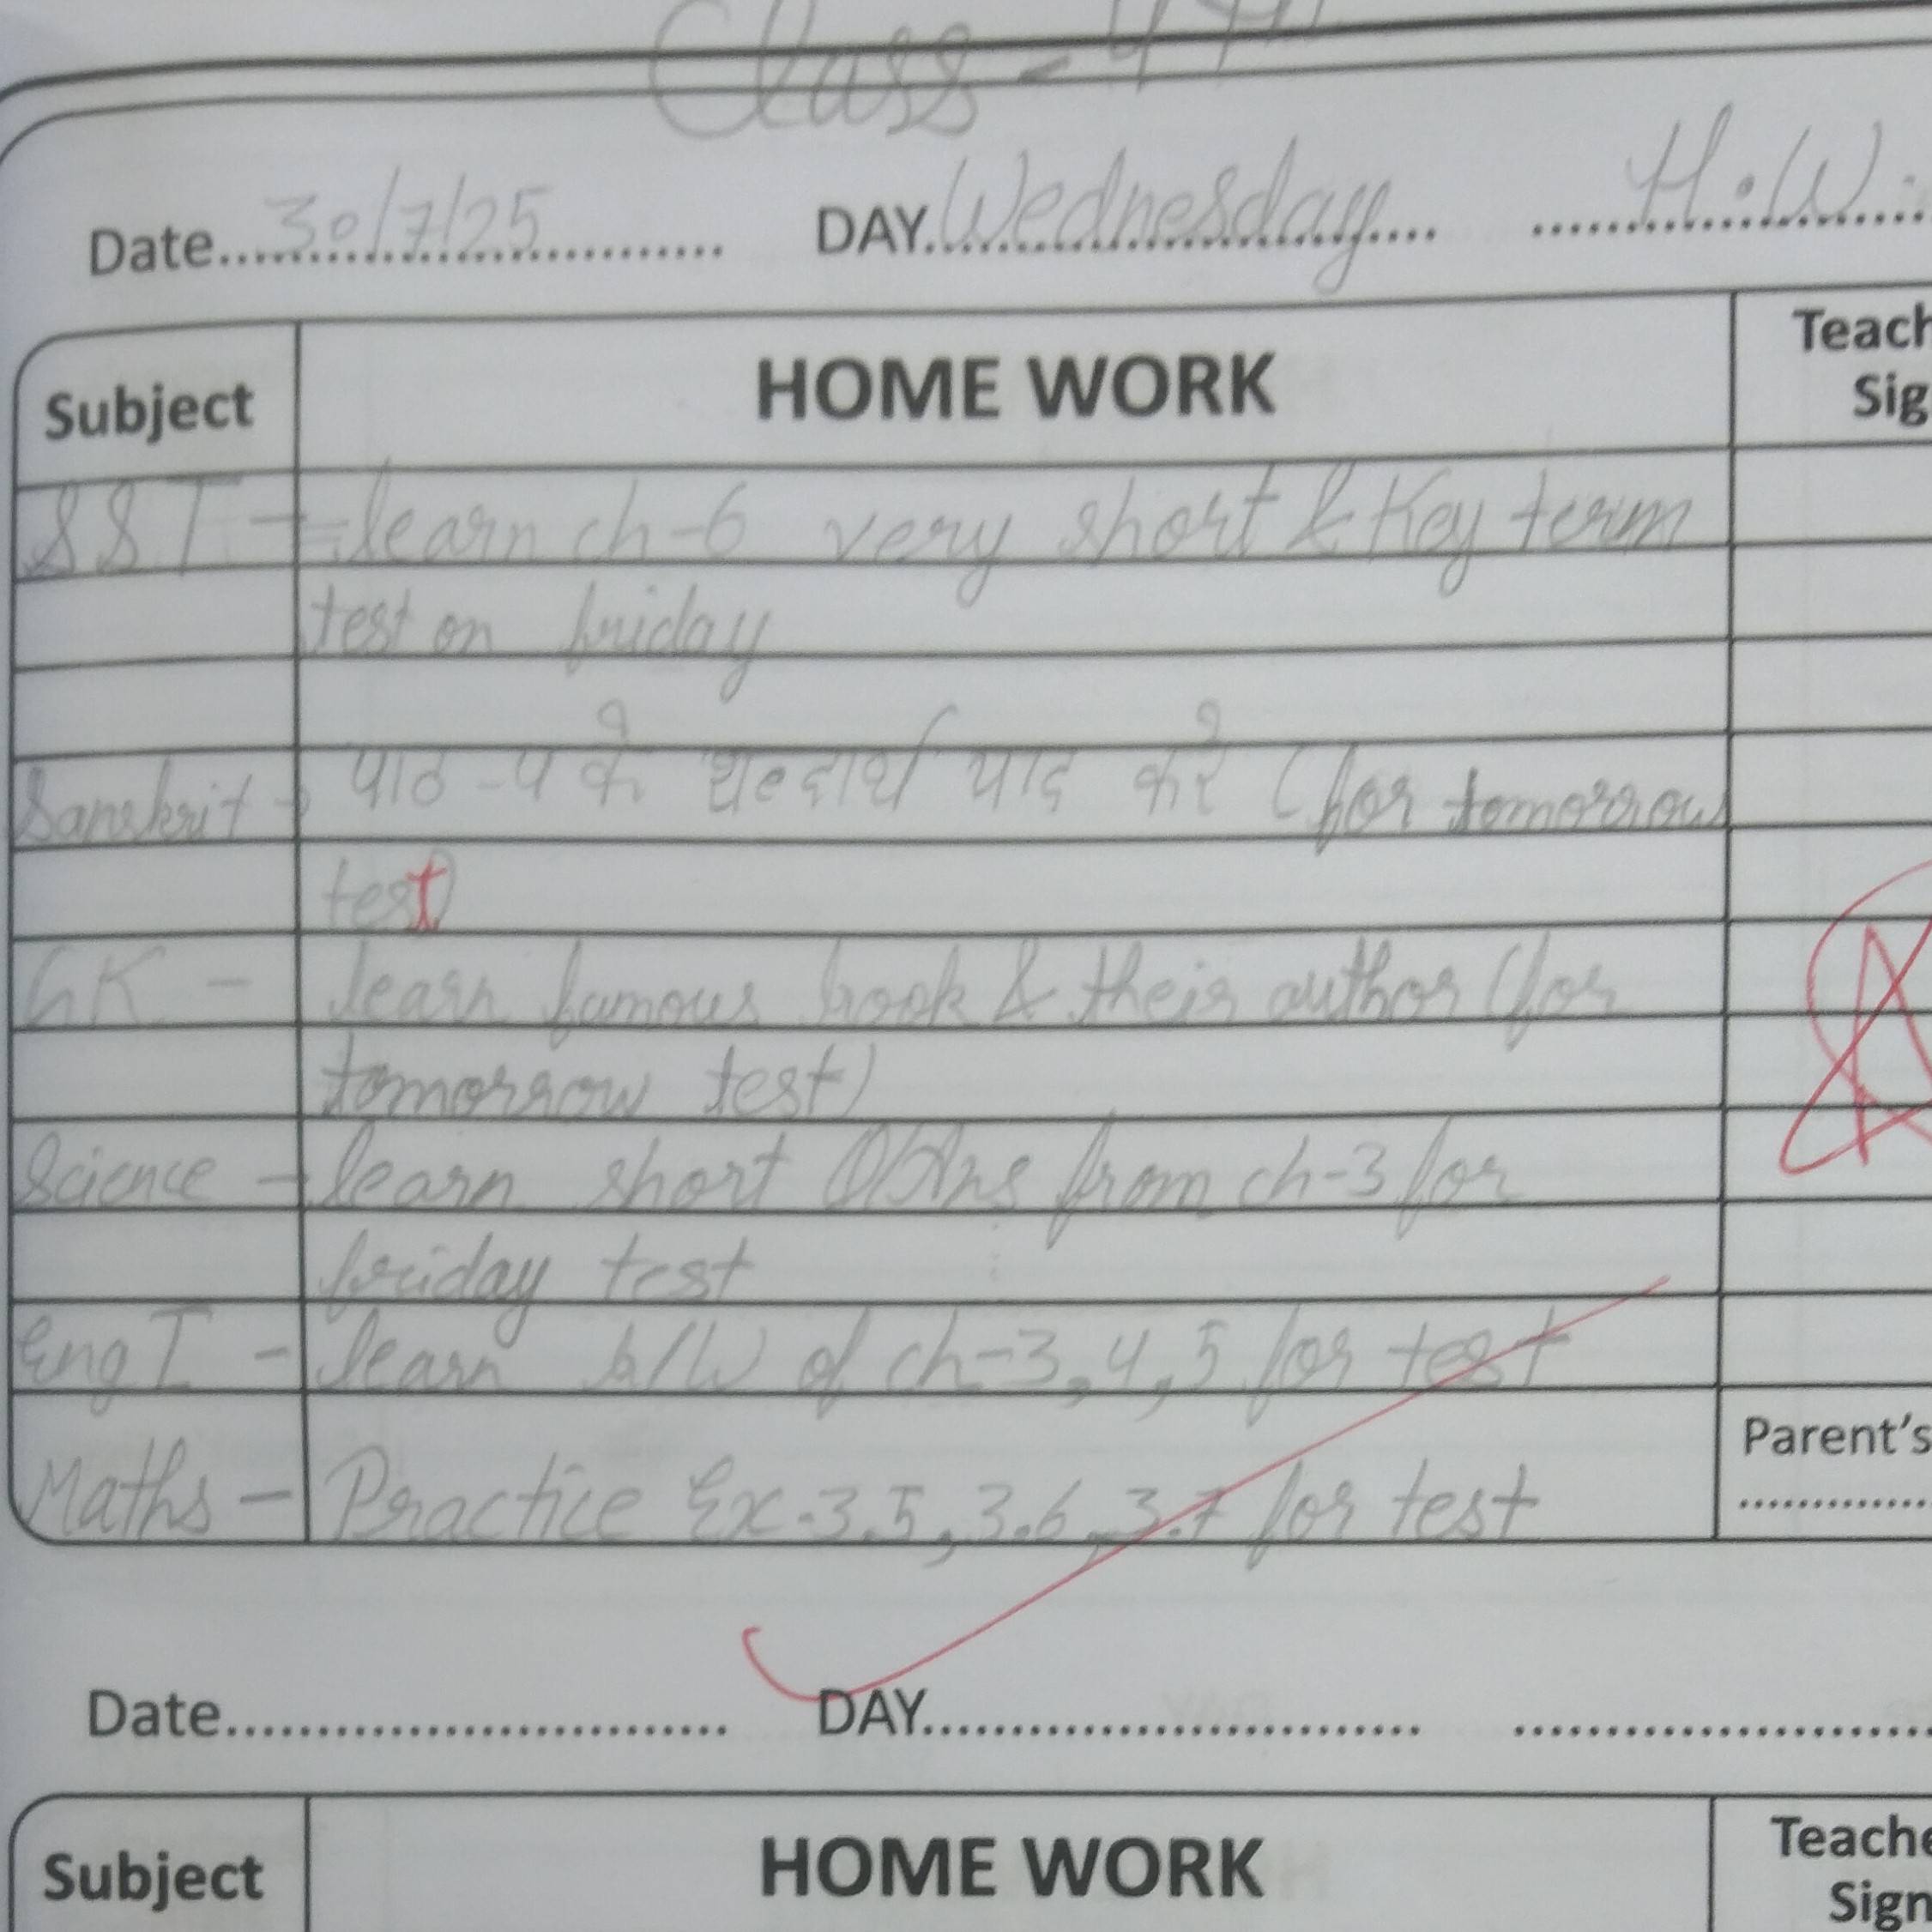 Class - 4th
Date....30/7/25.... DAY.Wednesday.... ....H.W.
Subject HOME WORK Teach
Sig
SST - learn ch-6 very short & Key term
test on friday
Sanskrit - पाठ -५ के शब्दार्थ याद करे (for tomorrow
test)
GK - learn famous book & their author (for
tomorrow test)
Science - learn short Q/Ans from ch-3 for
friday test
Eng I - learn b/W of ch-3,4,5 for test
Parent's
Maths - Practice Ex-3.5, 3.6, 3.7 for test
Date.............................. DAY.............................. ..............................
Subject HOME WORK Teache
Sign